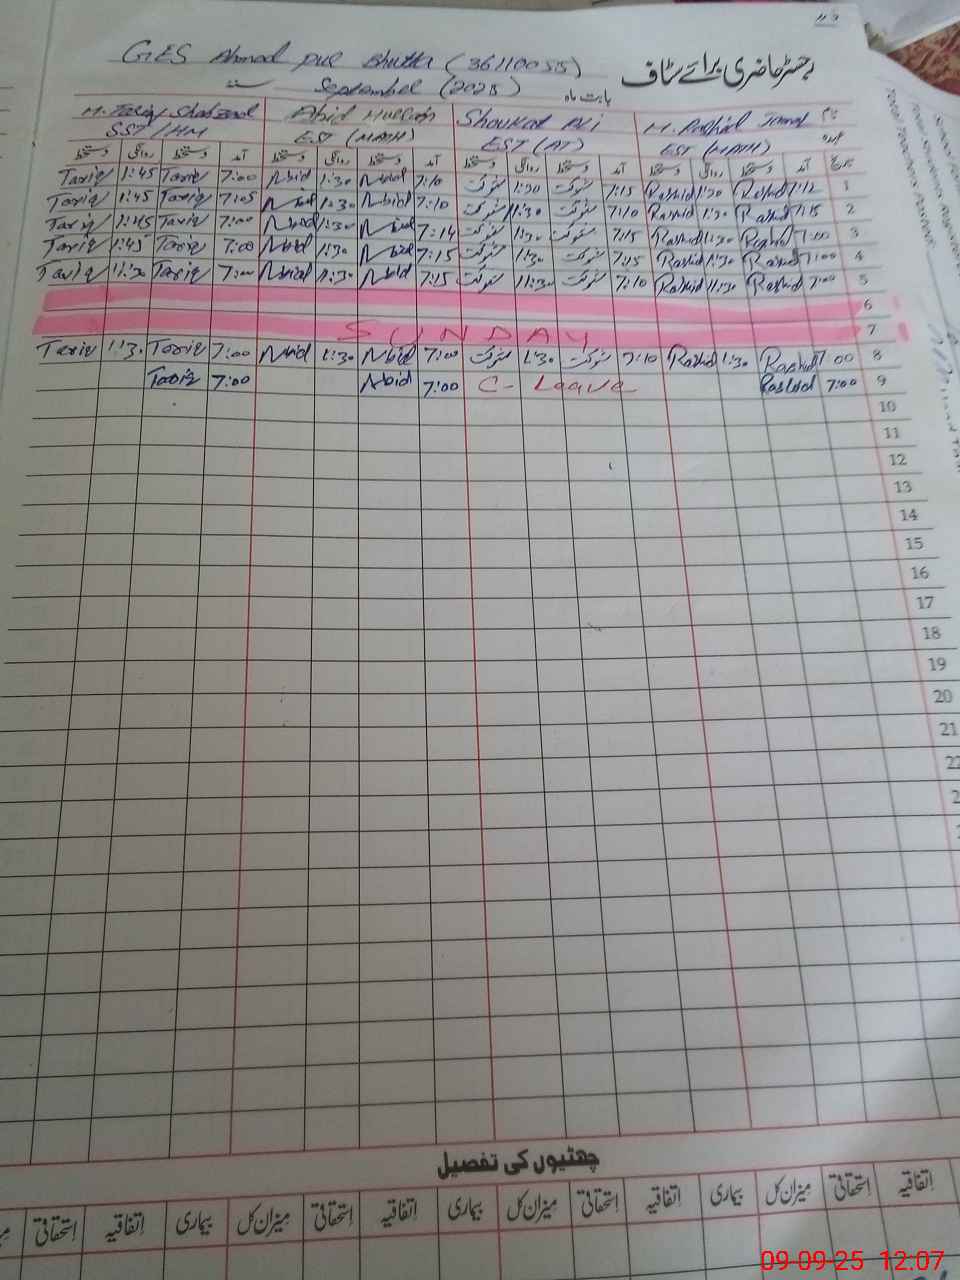 GES Ahmad pur Bhutta (36110055)
رجسٹر حاضری برائے سٹاف
September (2025) بابت ماہ
M. Tariq Shahzad Abid Hussain Shoukat Ali M. Rashid Jamal نام
SST/HM EST (MATH) EST (AT) EST (MATH) عہدہ
دستخط روانگی دستخط آمد دستخط روانگی دستخط آمد دستخط روانگی دستخط آمد دستخط روانگی دستخط آمد تاریخ
Tariq 1:45 Tariq 7:00 Abid 1:30 Abid 7:10 شوکت 1:30 شوکت 7:15 Rashid 1:30 Rashid 7:12 1
Tariq 1:45 Tariq 7:05 Abid 1:30 Abid 7:10 شوکت 1:30 شوکت 7:10 Rashid 1:30 Rashid 7:15 2
Tariq 1:45 Tariq 7:00 Abid 1:30 Abid 7:14 شوکت 1:30 شوکت 7:15 Rashid 1:30 Rashid 7:00 3
Tariq 1:45 Tariq 7:00 Abid 1:30 Abid 7:15 شوکت 1:30 شوکت 7:15 Rashid 1:30 Rashid 7:00 4
Tariq 11:30 Tariq 7:00 Abid 11:30 Abid 7:15 شوکت 11:30 شوکت 7:10 Rashid 11:30 Rashid 7:00 5
6
SUNDAY 7
Tariq 1:30 Tariq 7:00 Abid 1:30 Abid 7:00 شوکت 1:30 شوکت 7:10 Rashid 1:30 Rashid 7:00 8
Tariq 7:00 Abid 7:00 C- Leave Rashid 7:00 9
10
11
12
13
14
15
16
17
18
19
20
21
22
چھٹیوں کی تفصیل
اتفاقیہ استحقاقی میزان کل بیماری اتفاقیہ استحقاقی میزان کل بیماری اتفاقیہ استحقاقی میزان کل بیماری اتفاقیہ استحقاقی
09-09-25 12:07